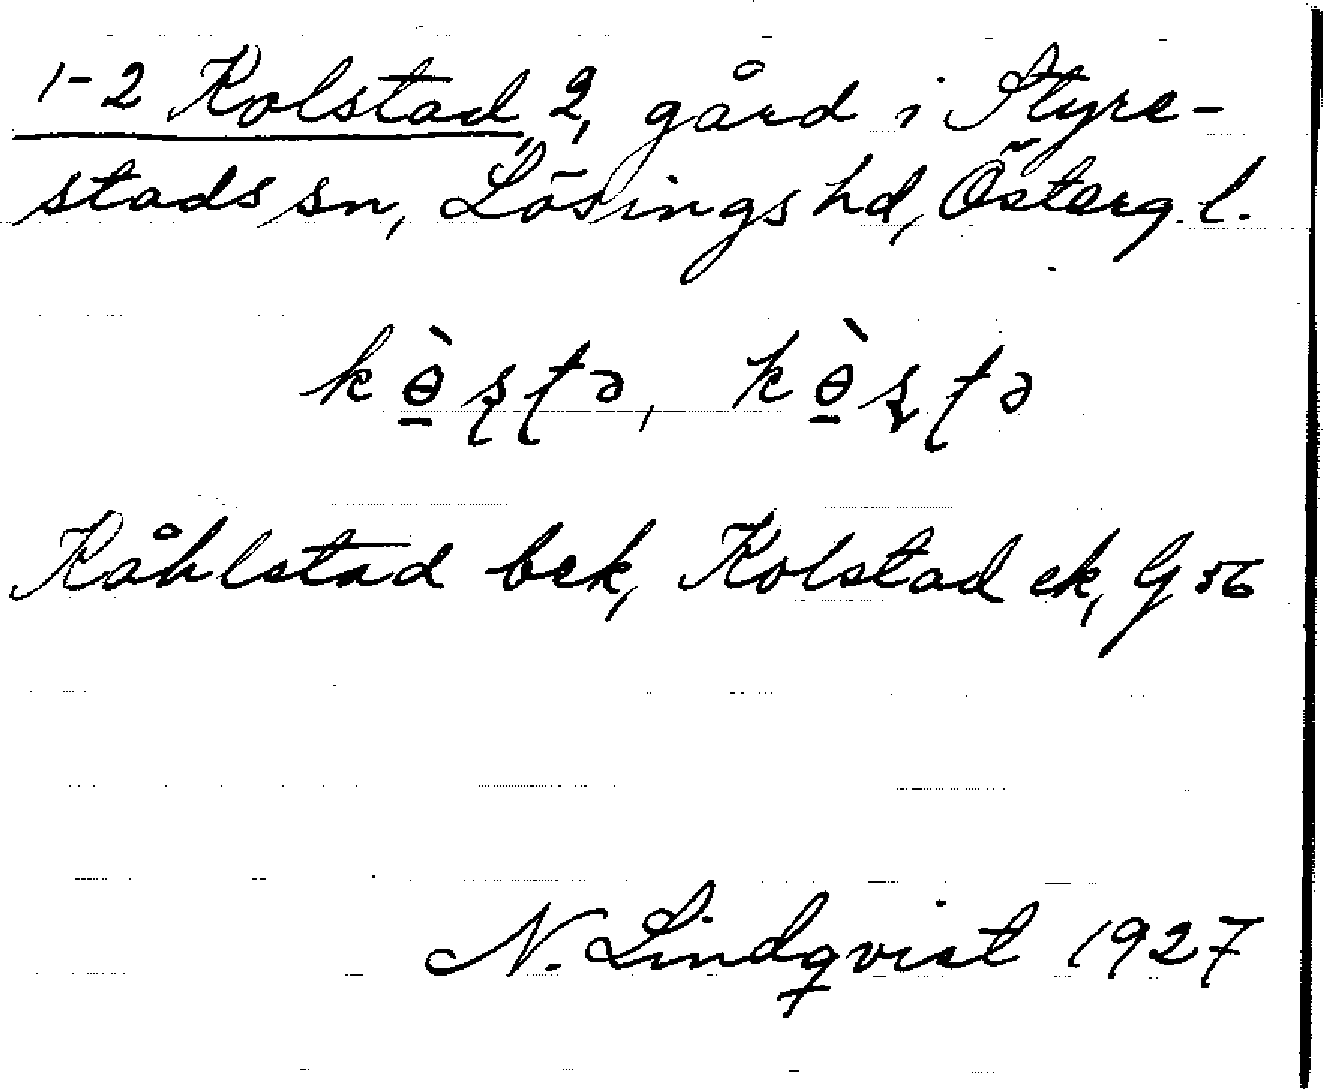 1-2 Kolstad, 2, gård i Styre-
stads sn, Lösings hd, Österg. l.
kɵ̠̀ʂʈə, kɵ̠̀ʂʈə
Kåhlstad bek, Kolstad ek, G 56
N. Lindqvist 1927